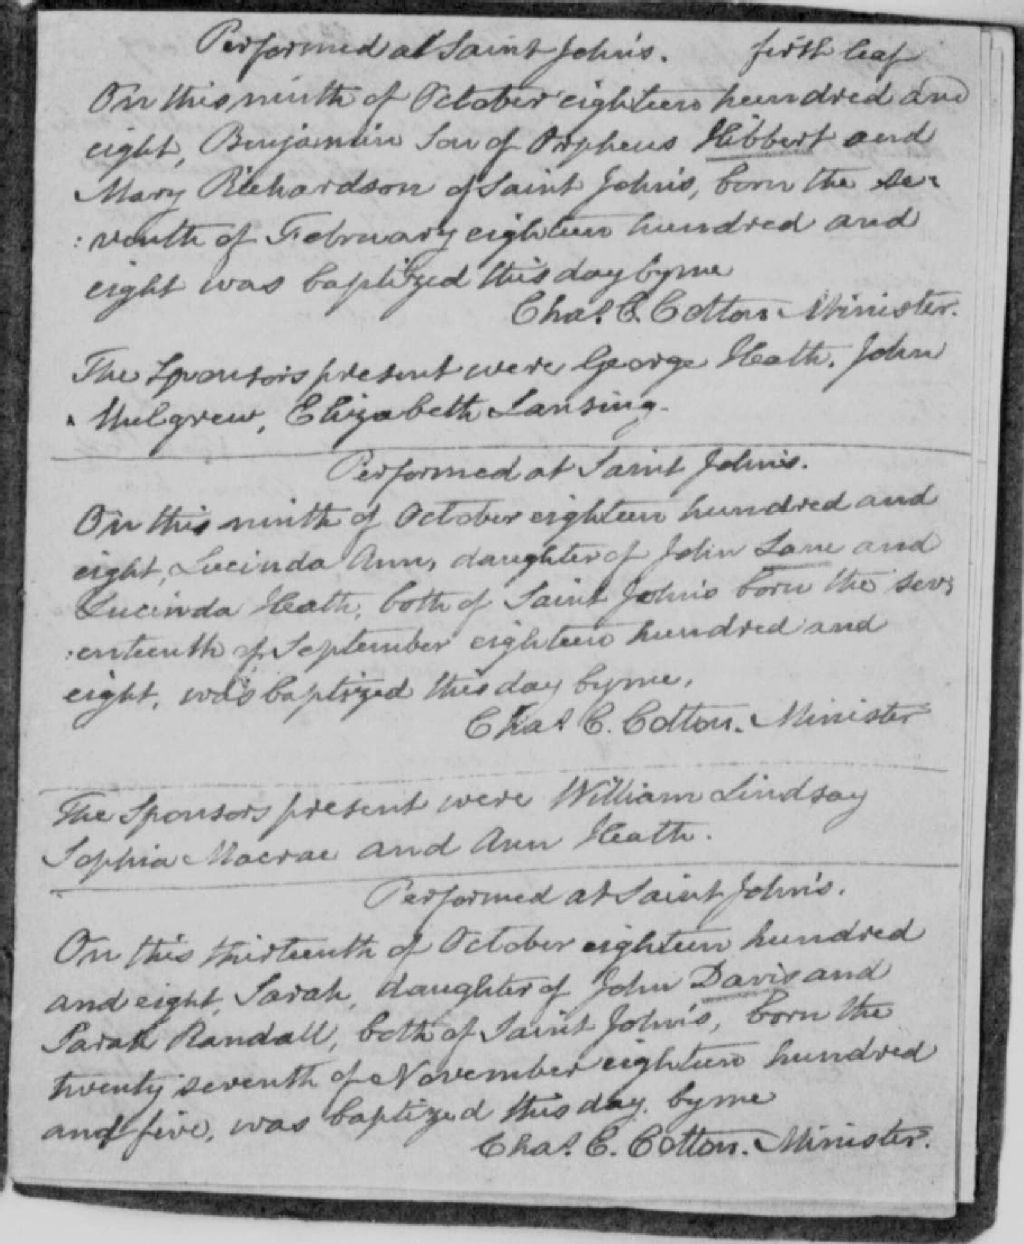 Performed at Saint John's. firth leaf
On this ninth of October eighteen hundred and
eight, Benjamin Son of Orpheus Hibbert and
Mary Richardson of Saint John's, born the se-
: venth of February eighteen hundred and
eight was baptized this day by me
Chas. C. Cotton Minister.
The Sponsors present were George Heath. John
Mulgrew, Elizabeth Lansing.
Performed at Saint John's.
On this ninth of October eighteen hundred and
eight, Lucinda Ann, daughter of John Lane and
Lucinda Heath, both of Saint John's born the sev:
:enteenth of September eighteen hundred and
eight, was baptized this day by me,
Chas. C. Cotton. Minister
The Sponsors present were William Lindsay
Sophia Macrae and Ann Heath.
Performed at Saint John's.
On this thirteenth of October eighteen hundred
and eight, Sarah, daughter of John Davis and
Sarah Randall, both of Saint John's, born the
twenty seventh of November eighteen hundred
and five, was baptized this day by me
Chas. C. Cotton. Minister.